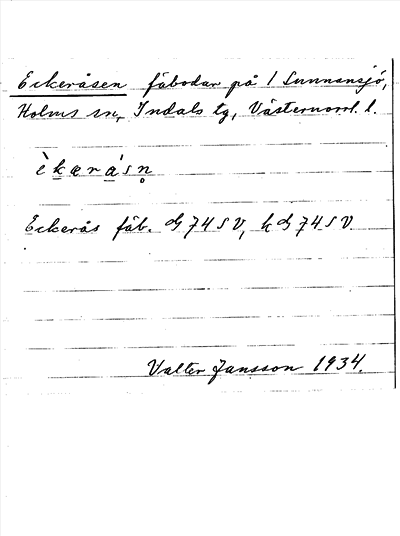 Eckeråsen fäbodar på 1 Sunnansjö,
Holms sn, Indals tg, Västernorrl. l.
èkærásn̥
Eckerås fäb. G 74 SV, k G 74 SV.
Valter Jansson 1934.